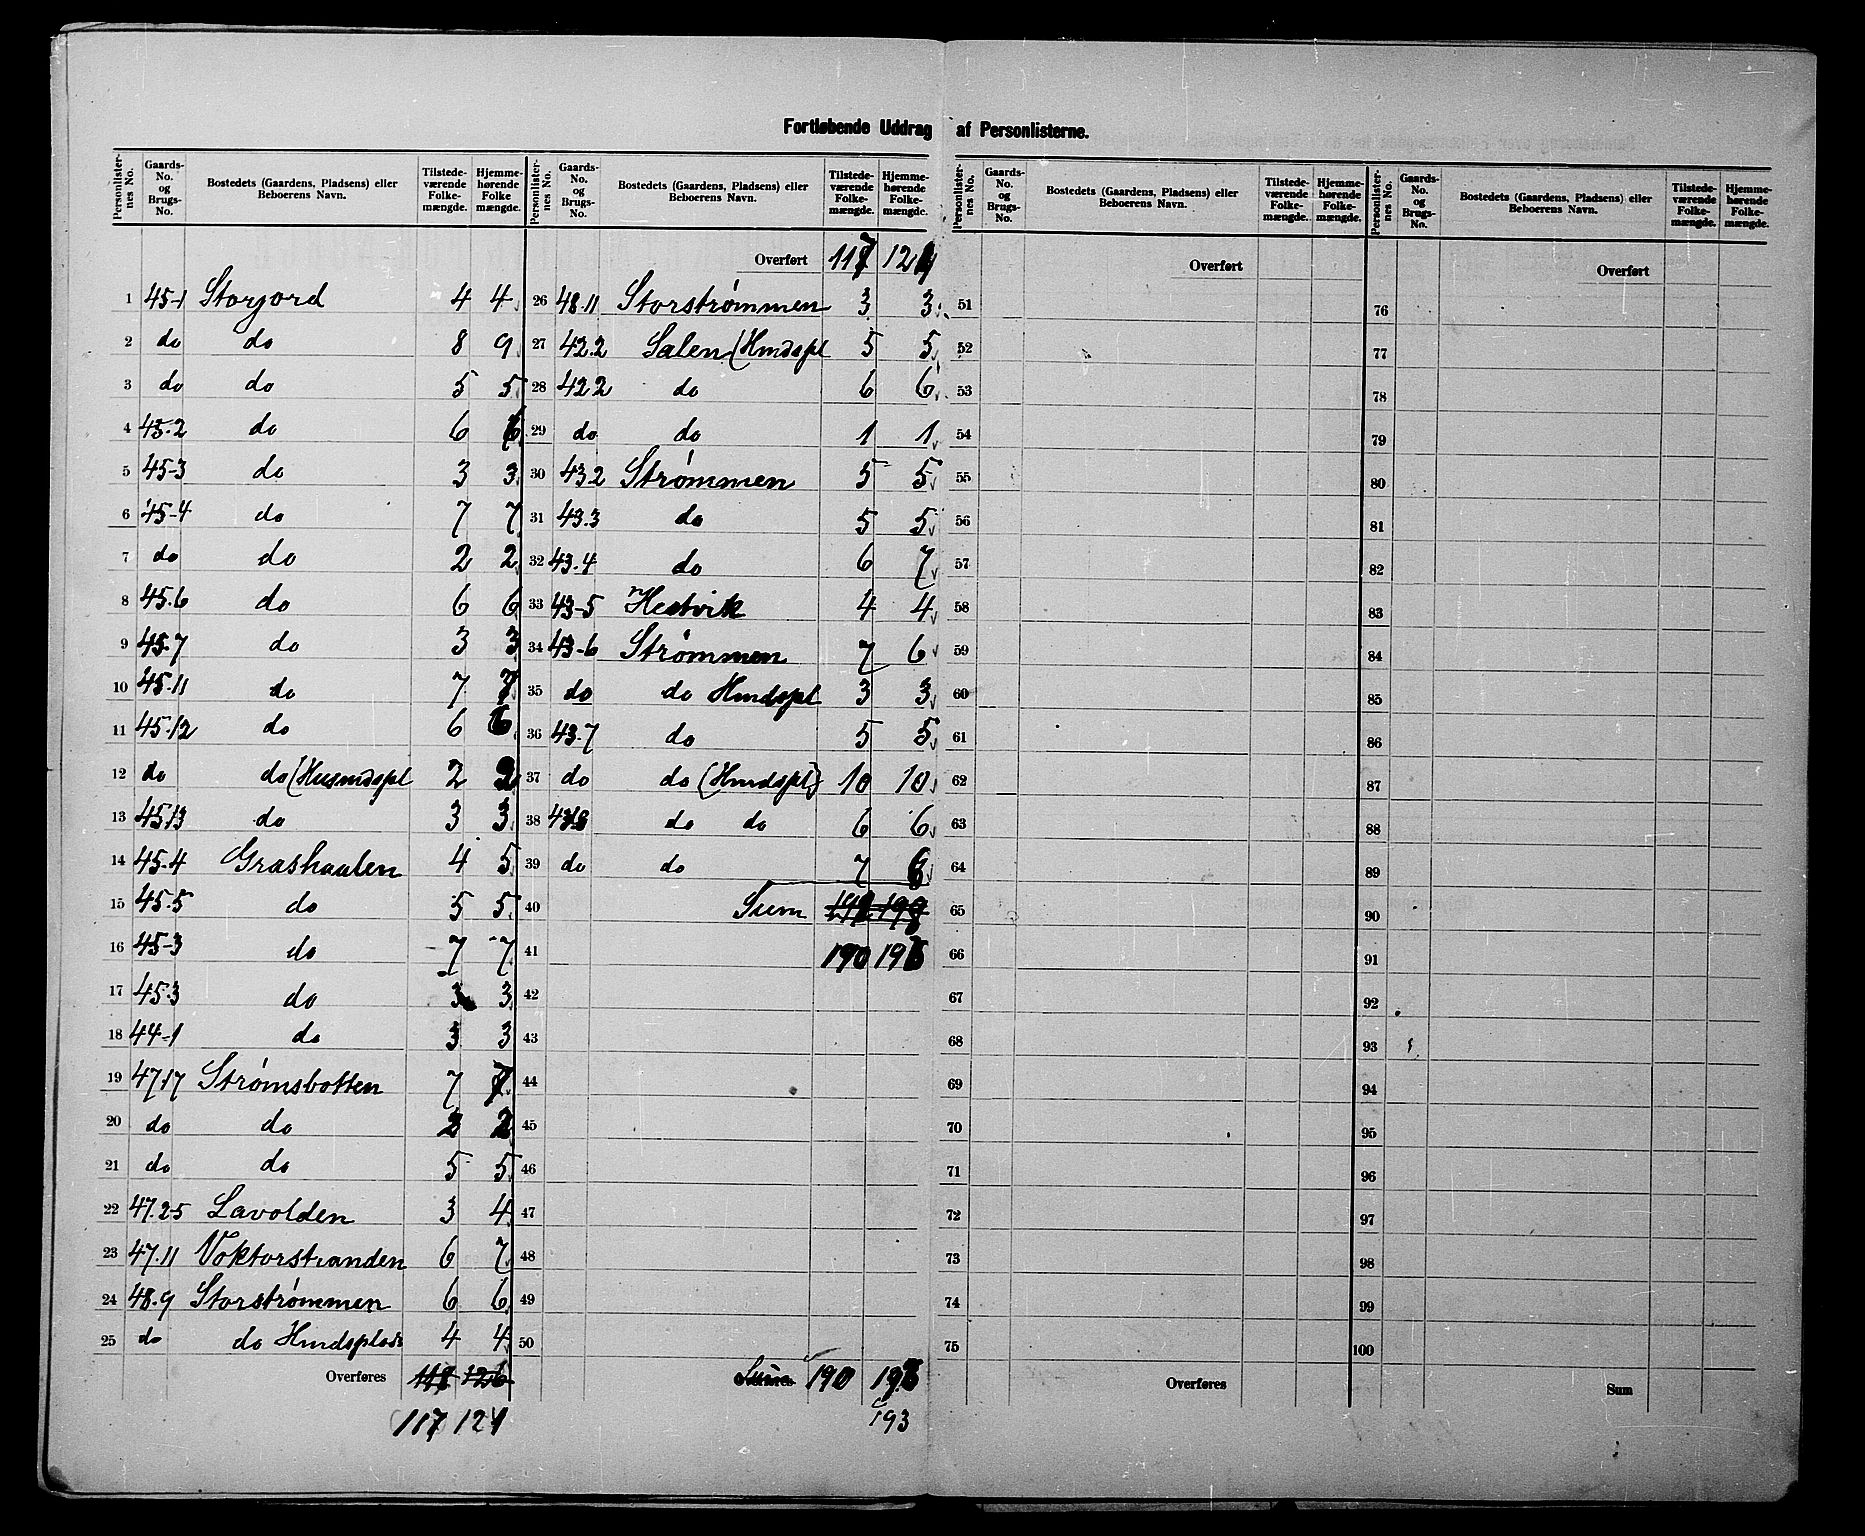 Fortløbende Uddrag af Personlisterne.
Personlister-nes No. Gaards-No. og Brugs-No. Bostedets (Gaardens, Pladsens) eller Beboerens Navn. Tilstede-værende Folke-mængde. Hjemme-hørende Folke mængde.
1 45-1 Storjord 4 4
2 do do 8 9
3 do do 5 5
4 45.2 do 6 6
5 45-3 do 3 3
6 45-4 do 7 7
7 do do 2 2
8 45.6 do 6 6
9 45.7 do 3 3
10 45.11 do 7 7
11 45.12 do 6 6
12 do do (Husmdspl 2 2
13 45.13 do 3 3
14 45.4 Grashaalen 4 5
15 45.5 do 5 5
16 45-3 do 7 7
17 45.3 do 3 3
18 44-1 do 3 3
19 47.17 Strømsbotten 7 7
20 do do 2 2
21 do do 5 5
22 47.25 Lavolden 3 4
23 47.11 Voktorstranden 6 7
24 48.9 Storstrømmen 6 6
25 do do Hmdsplads 4 4
Overføres 118 126
117 121
Personlister-nes No. Gaards-No. og Brugs-No. Bostedets (Gaardens, Pladsens) eller Beboerens Navn. Tilstede-værende Folke-mængde. Hjemme-hørende Folke-mængde.
Overført 117
26 48.11 Storstrømmen 3 3
27 42.2 Salen (Hmdspl 5 5
28 42.2 do 6 6
29 do do 1 1
30 43.2 Strømmen 5 5
31 43.3 do 5 5
32 43.4 do 6 7
33 43-5 Hestvik 4 4
34 43-6 Strømmen 7 6
35 do do Hmdspl 3 3
36 43.7 do 5 5
37 do do (Hmdspl) 10 10
38 do do 6 6
39 do do 7 6
40 Sum
41 190 195
42
43
44
45
46
47
48
49
50
Sum 190
193
Personlister-nes No. Gaards-No. og Brugs-No. Bostedets (Gaardens, Pladsens) eller Beboerens Navn. Tilstede-værende Folke-mængde. Hjemme-hørende Folke-mængde.
Overført
51
52
53
54
55
56
57
58
59
60
61
62
63
64
65
66
67
68
69
70
71
72
73
74
75
Overføres
Personlister-nes No. Gaards-No. og Brugs-No. Bostedets (Gaardens, Pladsens) eller Beboerens Navn. Tilstede-værende Folke-mængde. Hjemme-hørende Folke-mængde.
Overført
76
77
78
79
80
81
82
83
84
85
86
87
88
89
90
91
92
93
94
95
96
97
98
99
100
Sum